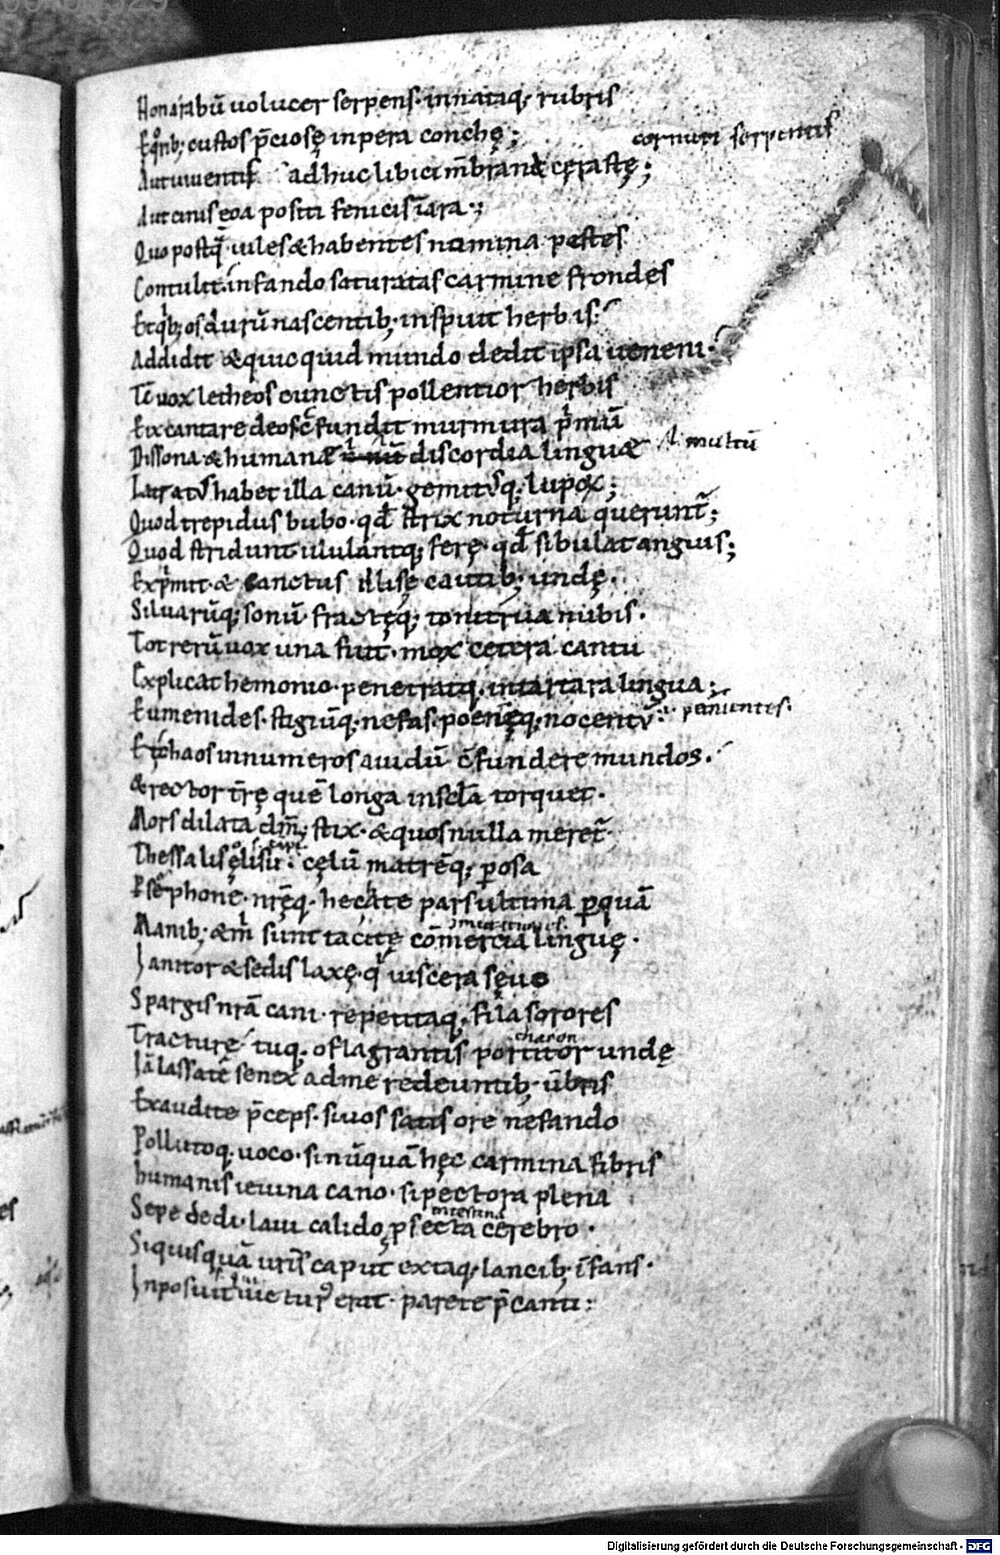 Non arabū uolucer serpens· innataq; rubris
Eqͦrib; custos p̄ciosę inpera conchę;
cornuti serpentis
Aut uiuentis adhuc libici m̄brana cęrastę;
Aut cinis eoa positi fenicis ī ara·;
Quo postq̄ uiles & habentes nomina pestes
Contulit· infando saturatas carmine frondes
Et qͥb; os dirū nascentib; inspuit herbis:
Addidit & quicquid mundo dedit ipsa ueneni·
Tc̄ uox letheos cunctis pollentior herbis
Excantare deos c̄fundit murmura pͥmū
Dissona & humanæ discordia linguæ
ł multū
Latratꝰ habet illa canū· gemitꝰq; lupoꝝ;
Quod trepidus bubo· qđ strix nocturna querunt̄;
Quod stridunt ululantq; ferę· qđ sibulat anguis;
Expͥmit· & planctus illisę cautib; undę·
Siluarūq; sonū· fractęq; tonitrua nubis·
Tot rerū uox una fuit· mox cetera cantu
Explicat hemonio· penetratq; in tartara lingua;
Eumenides· stigiūq; nefas· poenęq; nocentū:
punientes·
Et chaos innumeros auidū c̄fundere mundos·
& rector t̄rę quē longa in sc̄la torquet·
Mors dilata dm̄; stix· & quos nulla meret̄·
Thessalis ęlisios: cęlū matrēq; ꝑosa
Psephone· nrēq· hecate pars ultima ꝑ quā
Manib; & m̄ sunt tacitę cōmercia linguę·
Ianitor & sedis laxę· qͥ uiscera sęuo
Spargis nrā cani· repetitaq; fila sorores
charon
Tracturę tuq; o flagrantis portitor undę
Iā lassate senex ad me redeuntib; ūbris
Exaudite p̄ceps· si uos satis ore nefando
Pollutoq; uoco· si nūquā hęc carmina fibris
humanis ieiuna cano· si pectora plena
intestina
Sepe dedi· laui calido ꝓsecta cerebro·
Siquis quā uris̄ caput extaq; lancib; īfans·
Inposuit uicturꝰ erat· parete p̄canti:
Digitalisierung gefördert durch die Deutsche Forschungsgemeinschaft - DFG